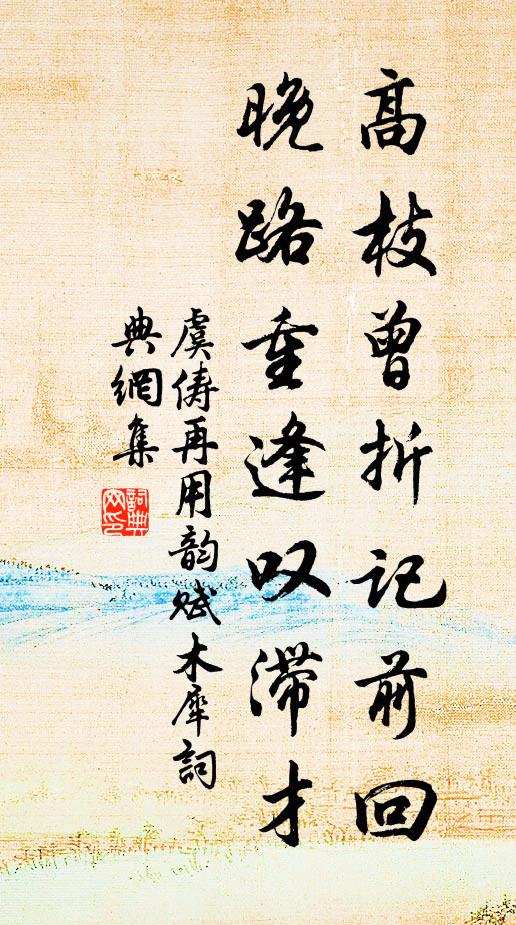 高枝曾折记前回
晚路重逢叹滞才
虞俦再用韵赋木犀詞
典網集
詞典
网印